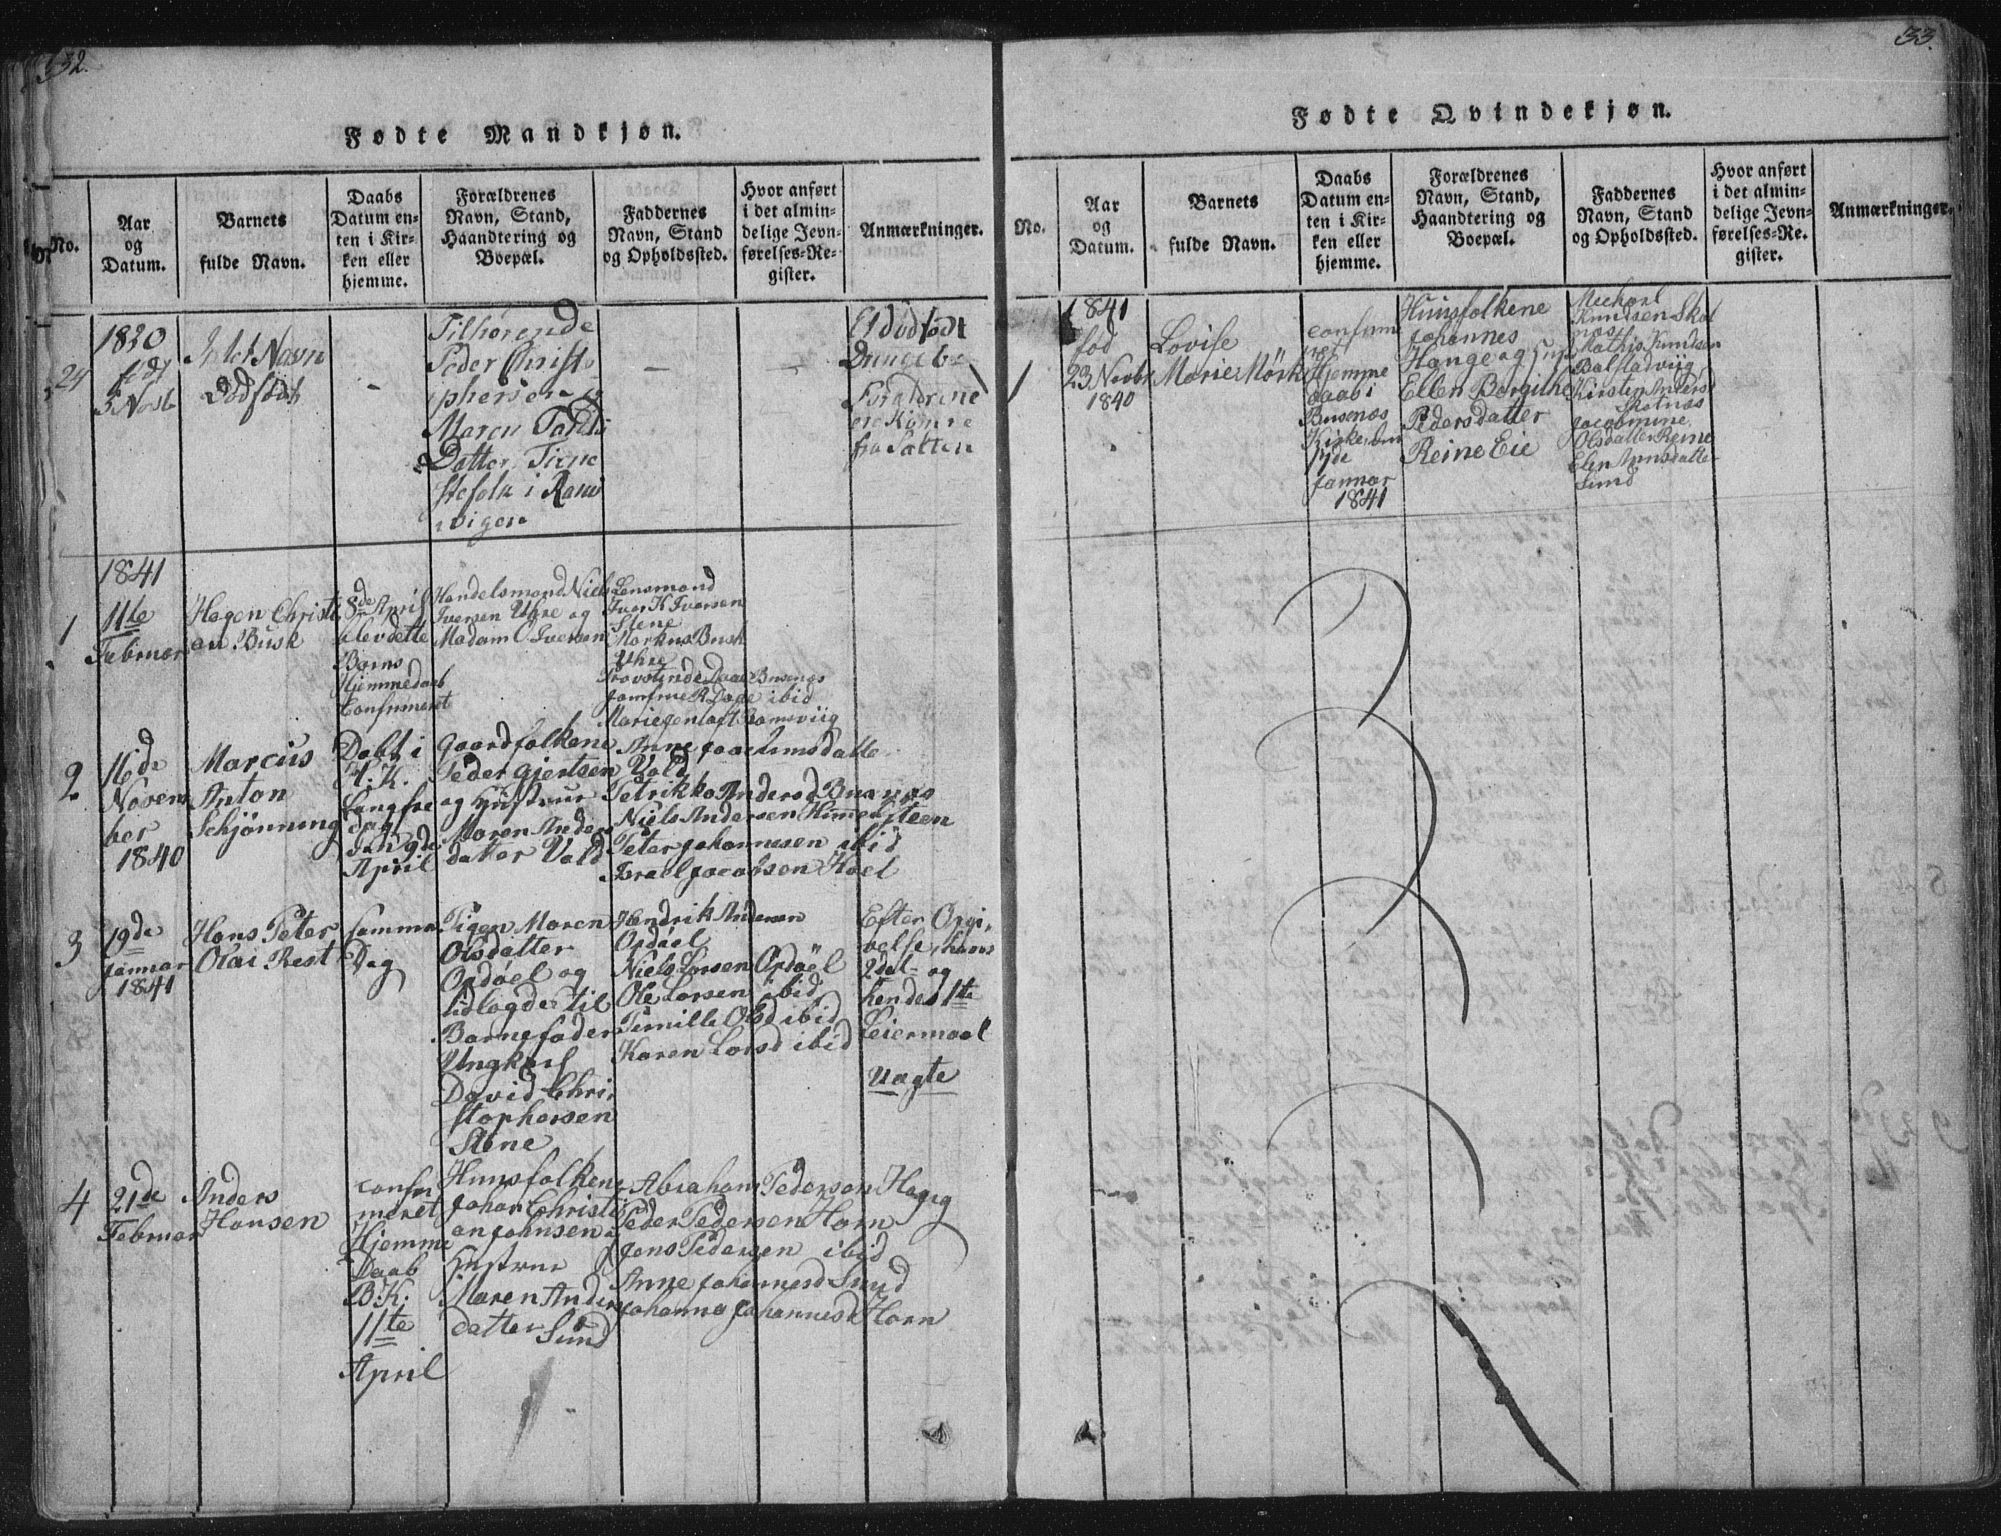 32.
Fødte Mandkjøn.
No.
Aar
og
Datum.
Barnets
fulde Navn.
Daabs
Datum en-
ten i Kir-
ken eller
hjemme.
Forældrenes
Navn, Stand,
Haandtering og
Boepæl.
Faddernes
Navn, Stand
og Opholdssted.
Hvor anført
i det almin-
delige Jevn-
førelses-Re-
gister.
Anmærkninger.
24
Intet Navn
Dødfødt
-
Tilhørende
Peder Christo
phersen og
Maren
Datter
i
vigen
Et dødfødt
Drengeb
Forældrene
ere Komne
fra Salten
1841
1
11te
Februar
Hagen Christi
an Busk
8de April
blev dette
Barns
Hjemmedaab
Confirmeret
Handelsmand Niels
Iversen Uhre og
Madam O Iversen
Lensmand
Iver K Iversen
Stene
Markus Busk
Uhre
Provstinde Daae Busenæs
R Daae ibid
2
16de
Novem
ber
1840
Marcius
Anton
Schjønning
Døbt i
H. K.
Langfre
dag
den 9de
April
Gaardfolkene
Peder Gjertsen
og Hustrue
Maren Anders
datter Vold
Anne Joachimsdatter
Vold
Petrikka Andersd Busnæs
Niels Andersen Himmelsteen
Peter Johannesen ibid
Israel Jacobsen Hoel
3
19de
Januar
1841
Hans Peter
Olai Rest
Samme
Dag
Pigen Maren
Olsdatter
Opdøel og
Udlagde til
Barnefader
Ungkarl
David Chri
stophersen
Stene
Hendrik Andersen
Opdøel
Niels Larsen Opdøel
Ole Larsen ibid
Pernille Olsd ibid
Karen Larsd ibid
Efter Opgi-
velse, hans
2det og
hendes 1te
Leiermaal
Uægte
4
21de
Februar
Anders
Hansen
confir
meret
Hjemme
Daab
B.K.
11te
April
Huusfolkene
Johan Christi
an Johnsen og
Hustrue
Maren Anders
datter Sund
Abraham Pedersen Hagig
Peder Pedersen Horn
Jens Pedersen ibid
Anne Johannesd Sund
Johanna Johannesd Horn
33.
Fødte Qvindekjøn.
No.
Aar
og
Datum.
Barnets
fulde Navn.
Daabs
Datum en-
ten i Kir-
ken eller
hjemme.
Forældrenes
Navn, Stand,
Haandtering og
Boepæl.
Faddernes
Navn, Stand
og Opholdssted.
Hvor anført
i det almin-
delige Jevn-
førelses-Re-
gister.
Anmærkninger.
1
1841
fød
23 Novbr
1840
Lovise
Marie Mørk
confirme
ret
Hjemme
daab i
Busenæs
Kirke, den
Januar
1841
Huusfolkene
Johannes
Hange og
Ellen Bergithe
Pedersdatter
Reine Eie
Michael
Knudsen Skot
næs
Mathis Knudsen
Balstadviig
Kirsten Andersd
Skotnæs
Jacobmine
Olsdatter Reine
Elen
Sund